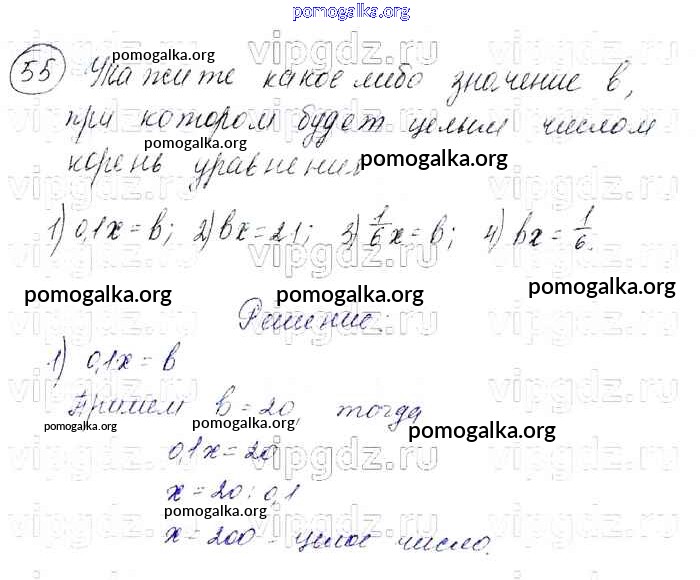 pomogalka.org
55 Укажите какое либо значение в,
при котором будет целым числом
корень уравнения
1) 0,1х = в; 2) вх = 21; 3) 1/6 х = в; 4) вх = 1/6.
Решение:
1) 0,1х = в
Примем в = 20, тогда
0,1х = 20
х = 20 : 0,1
х = 200 - целое число.
pomogalka.org
pomogalka.org
pomogalka.org
pomogalka.org
pomogalka.org
pomogalka.org
pomogalka.org
pomogalka.org
vipgdz.ru